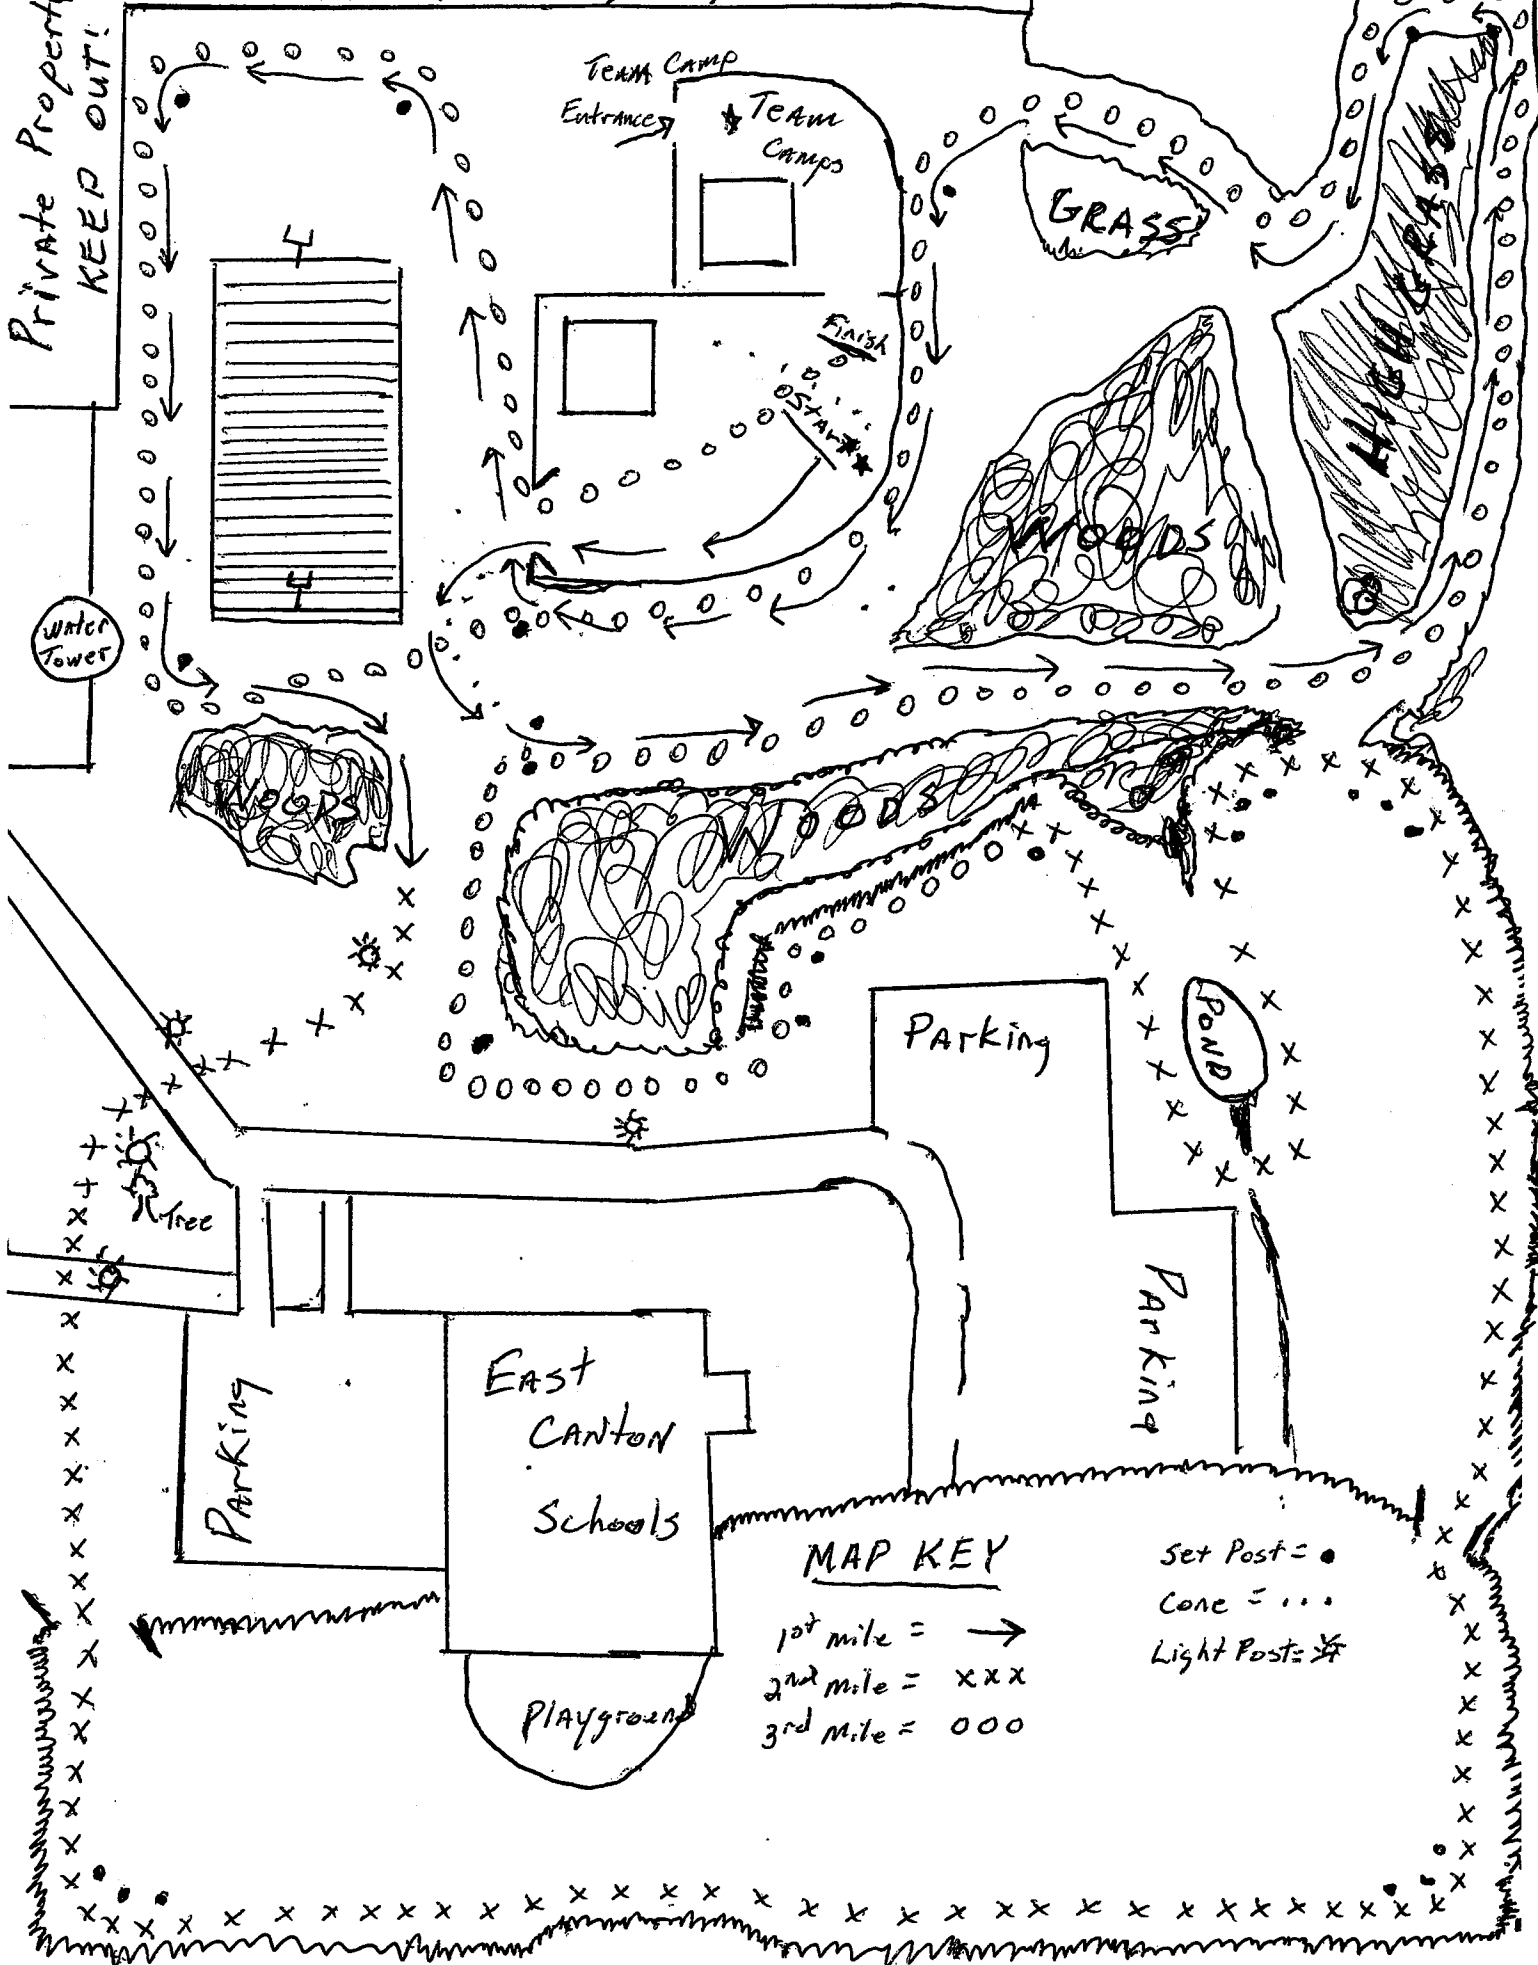 Private Property
KEEP OUT!
Team Camp
Entrance
Team
Camps
GRASS
HIGH GRASS
Finish
Start
WOODS
Water
Tower
WOODS
WOODS
POND
Parking
Tree
Parking
Parking
EAST
CANTON
Schools
Playground
MAP KEY
1st mile =
2nd mile = xxx
3rd mile = 000
Set Post =
Cone = ...
Light Post =